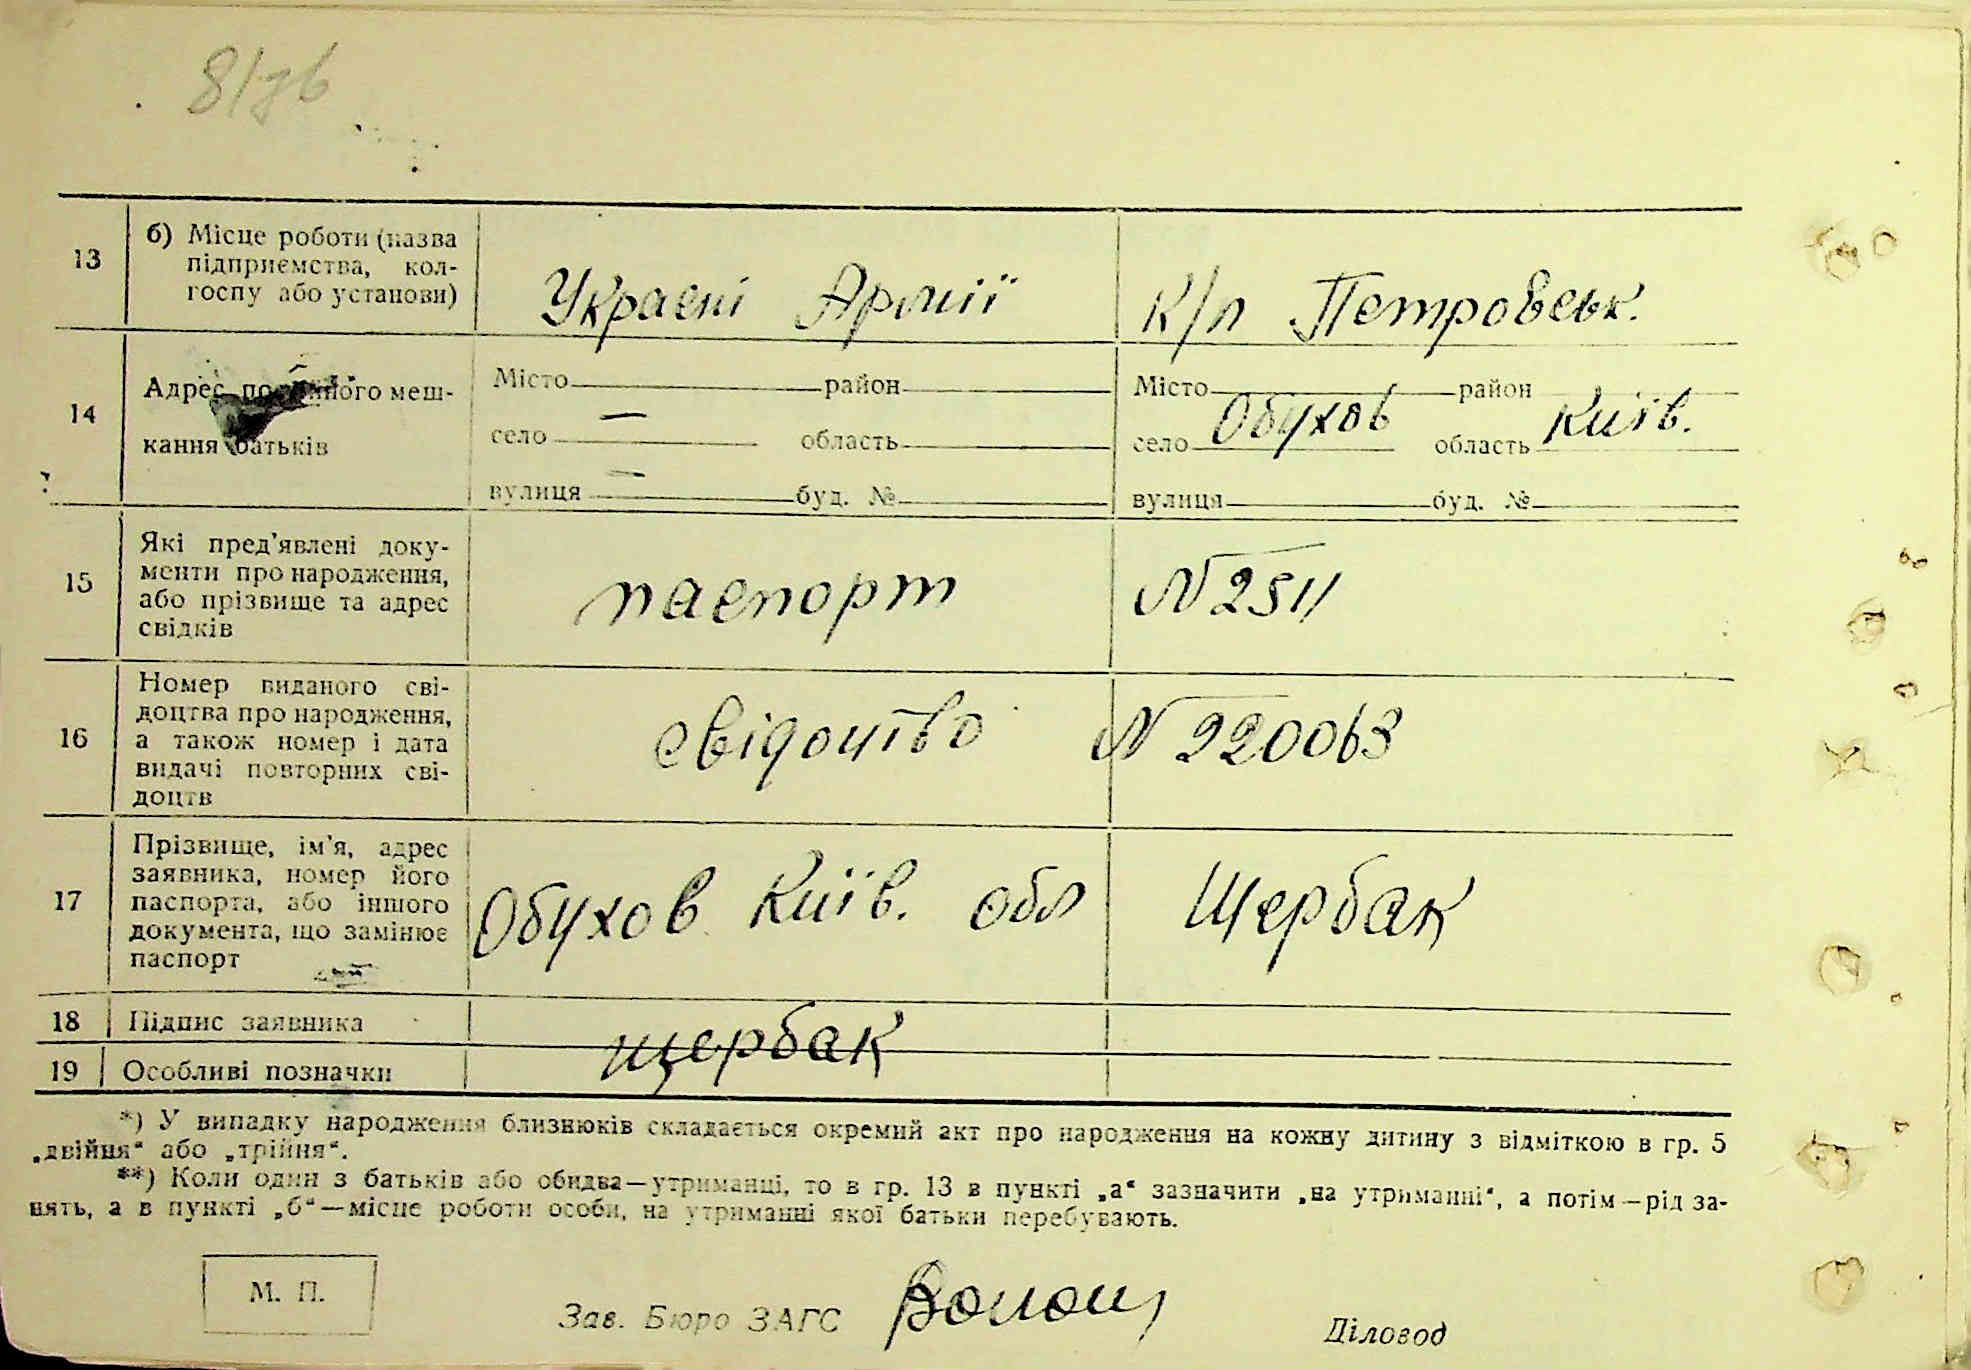 13 б) Місце роботи (назва
підприємства, кол-
госпу або установи)
Украєні Армії
к/л Петровськ.
14 Адрес постійного меш-
кання батьків
Місто район
село — область
вулиця — буд. №
Місто район
село Обухов область Київ.
вулиця буд. №
15 Які пред'явлені доку-
менти про народження,
або прізвище та адрес
свідків
паспорт
N 2511
16 Номер виданого сві-
доцтва про народження,
а також номер і дата
видачі повторних сві-
доцтв
свідоцтво
N 220063
17 Прізвище, ім'я, адрес
заявника, номер його
паспорта, або іншого
документа, що замінює
паспорт
Обухов Київ. обл
Щербак
18 Підпис заявника
щербак
19 Особливі позначки
*) У випадку народження близнюків складається окремий акт про народження на кожну дитину з відміткою в гр. 5
„двійня“ або „трійня“.
**) Коли один з батьків або обидва—утриманці, то в гр. 13 в пункті „а“ зазначити „на утриманні“, а потім—рід за-
нять, а в пункті „б“—місце роботи особи, на утриманні якої батьки перебувають.
М. П.
Зав. Бюро ЗАГС
Діловод